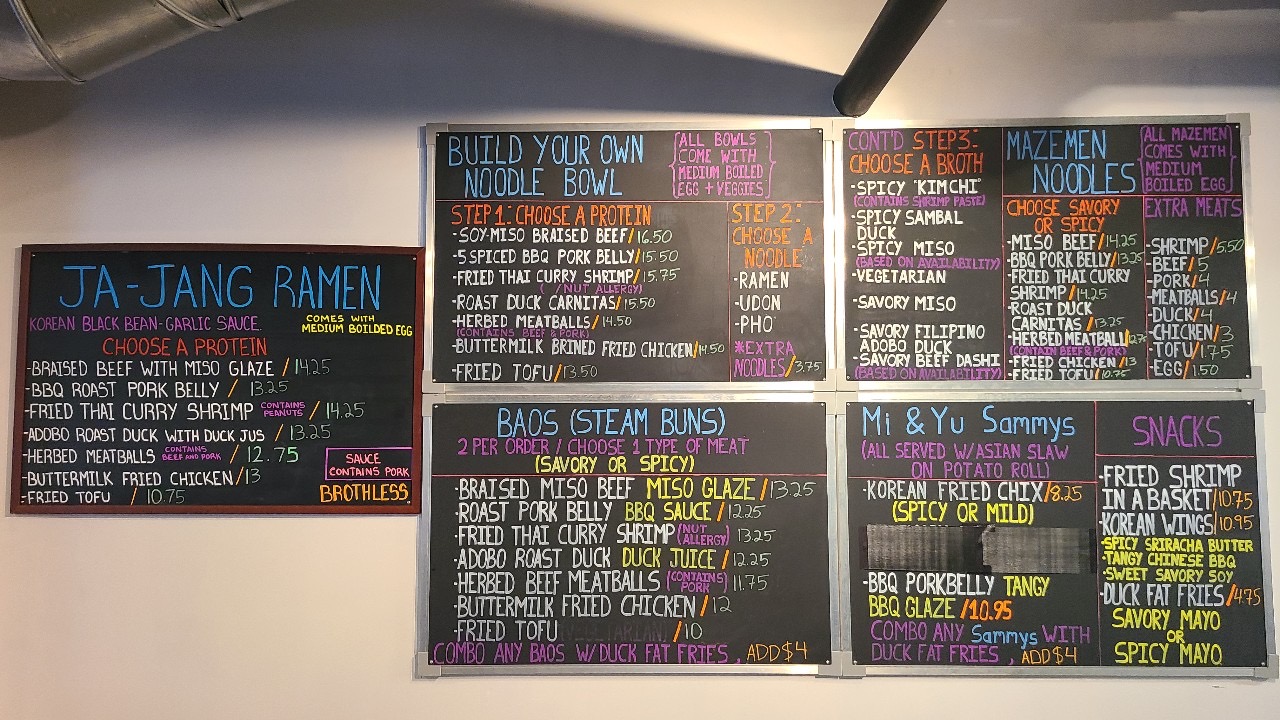 JA-JANG RAMEN
KOREAN BLACK BEAN-GARLIC SAUCE.
COMES WITH
MEDIUM BOILDED EGG
CHOOSE A PROTEIN
-BRAISED BEEF WITH MISO GLAZE / 14.25
-BBQ ROAST PORK BELLY / 13.25
-FRIED THAI CURRY SHRIMP CONTAINS PEANUTS / 14.25
-ADOBO ROAST DUCK WITH DUCK JUS / 13.25
-HERBED MEATBALLS CONTAINS BEEF AND PORK / 12.75
-BUTTERMILK FRIED CHICKEN/13
-FRIED TOFU / 10.75
SAUCE
CONTAINS PORK
BROTHLESS
BUILD YOUR OWN
NOODLE BOWL
ALL BOWLS
COME WITH
MEDIUM BOILED
EGG + VEGGIES
STEP 1: CHOOSE A PROTEIN
-SOY-MISO BRAISED BEEF/16.50
-5 SPICED BBQ PORK BELLY/15.50
-FRIED THAI CURRY SHRIMP/15.75
(NUT ALLERGY)
-ROAST DUCK CARNITAS/15.50
-HERBED MEATBALLS/14.50
(CONTAINS BEEF & PORK)
-BUTTERMILK BRINED FRIED CHICKEN/14.50
-FRIED TOFU/13.50
STEP 2:
CHOOSE A
NOODLE
-RAMEN
-UDON
-PHO
*EXTRA
NOODLES/3.75
CONT'D STEP 3:
CHOOSE A BROTH
-SPICY "KIMCHI"
(CONTAINS SHRIMP PASTE)
-SPICY SAMBAL
DUCK
-SPICY MISO
(BASED ON AVAILABILITY)
-VEGETARIAN
-SAVORY MISO
-SAVORY FILIPINO
ADOBO DUCK
-SAVORY BEEF DASHI
(BASED ON AVAILABILITY)
MAZEMEN
NOODLES
ALL MAZEMEN
COMES WITH
MEDIUM
BOILED EGG
CHOOSE SAVORY
OR SPICY
-MISO BEEF/14.25
-BBQ PORK BELLY/13.25
-FRIED THAI CURRY
SHRIMP/14.25
-ROAST DUCK
CARNITAS/13.25
-HERBED MEATBALL/12.75
(CONTAIN BEEF & PORK)
-FRIED CHICKEN/13
-FRIED TOFU/10.75
EXTRA MEATS
-SHRIMP/5.50
-BEEF/5
-PORK/4
-MEATBALLS/4
-DUCK/4
-CHICKEN/3
-TOFU/1.75
-EGG/1.50
BAOS (STEAM BUNS)
2 PER ORDER / CHOOSE 1 TYPE OF MEAT
(SAVORY OR SPICY)
-BRAISED MISO BEEF MISO GLAZE/13.25
-ROAST PORK BELLY BBQ SAUCE/12.25
-FRIED THAI CURRY SHRIMP (NUT ALLERGY) 13.25
-ADOBO ROAST DUCK DUCK JUICE/12.25
-HERBED BEEF MEATBALLS (CONTAINS PORK) 11.75
-BUTTERMILK FRIED CHICKEN/12
-FRIED TOFU (VEGETARIAN) /10
COMBO ANY BAOS W/DUCK FAT FRIES, ADD $4
Mi & Yu Sammys
(ALL SERVED W/ASIAN SLAW
ON POTATO ROLL)
-KOREAN FRIED CHIX/8.25
(SPICY OR MILD)
-BBQ PORKBELLY TANGY
BBQ GLAZE/10.95
COMBO ANY Sammys WITH
DUCK FAT FRIES, ADD $4
SNACKS
-FRIED SHRIMP
IN A BASKET/10.75
-KOREAN WINGS/10.95
-SPICY SRIRACHA BUTTER
-TANGY CHINESE BBQ
-SWEET SAVORY SOY
-DUCK FAT FRIES/4.75
SAVORY MAYO
OR
SPICY MAYO